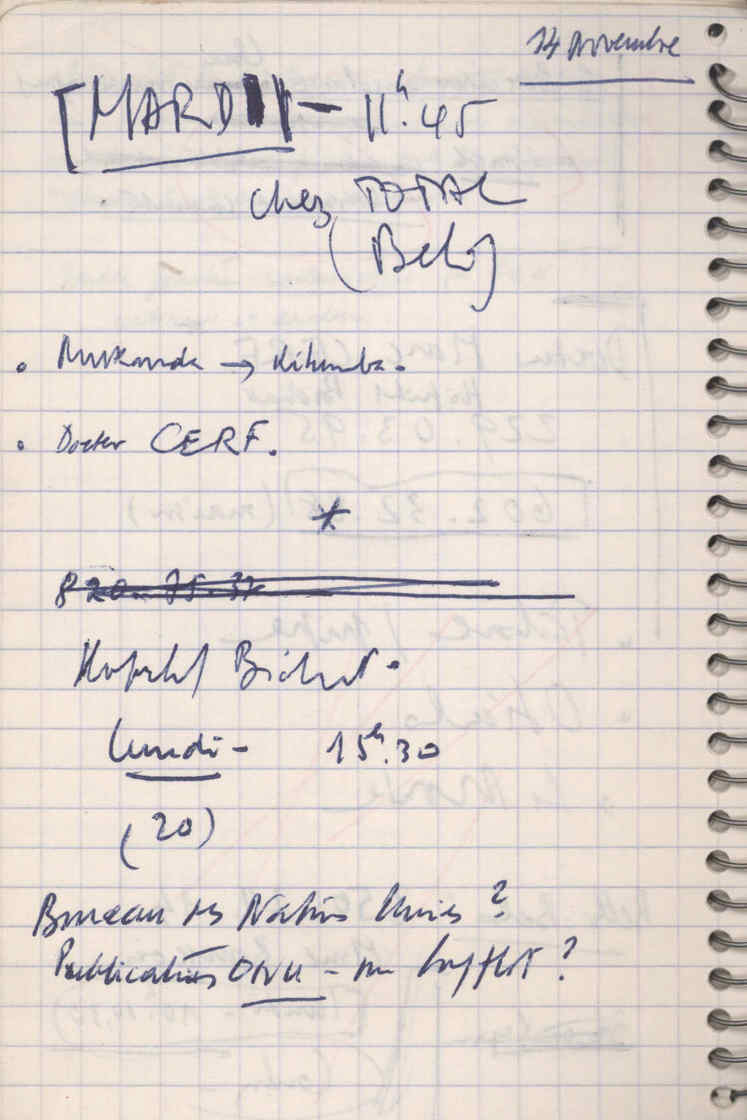 14 Novembre
[MARDI - 11h.45
chez TOTAL
• → Kitumba.
• Docteur CERF.
*
820.75.37
Hopital Bichat.
lundi - 15h.30
(20)
Bureau des Nations Unies ?
Publications ONU - rue ?